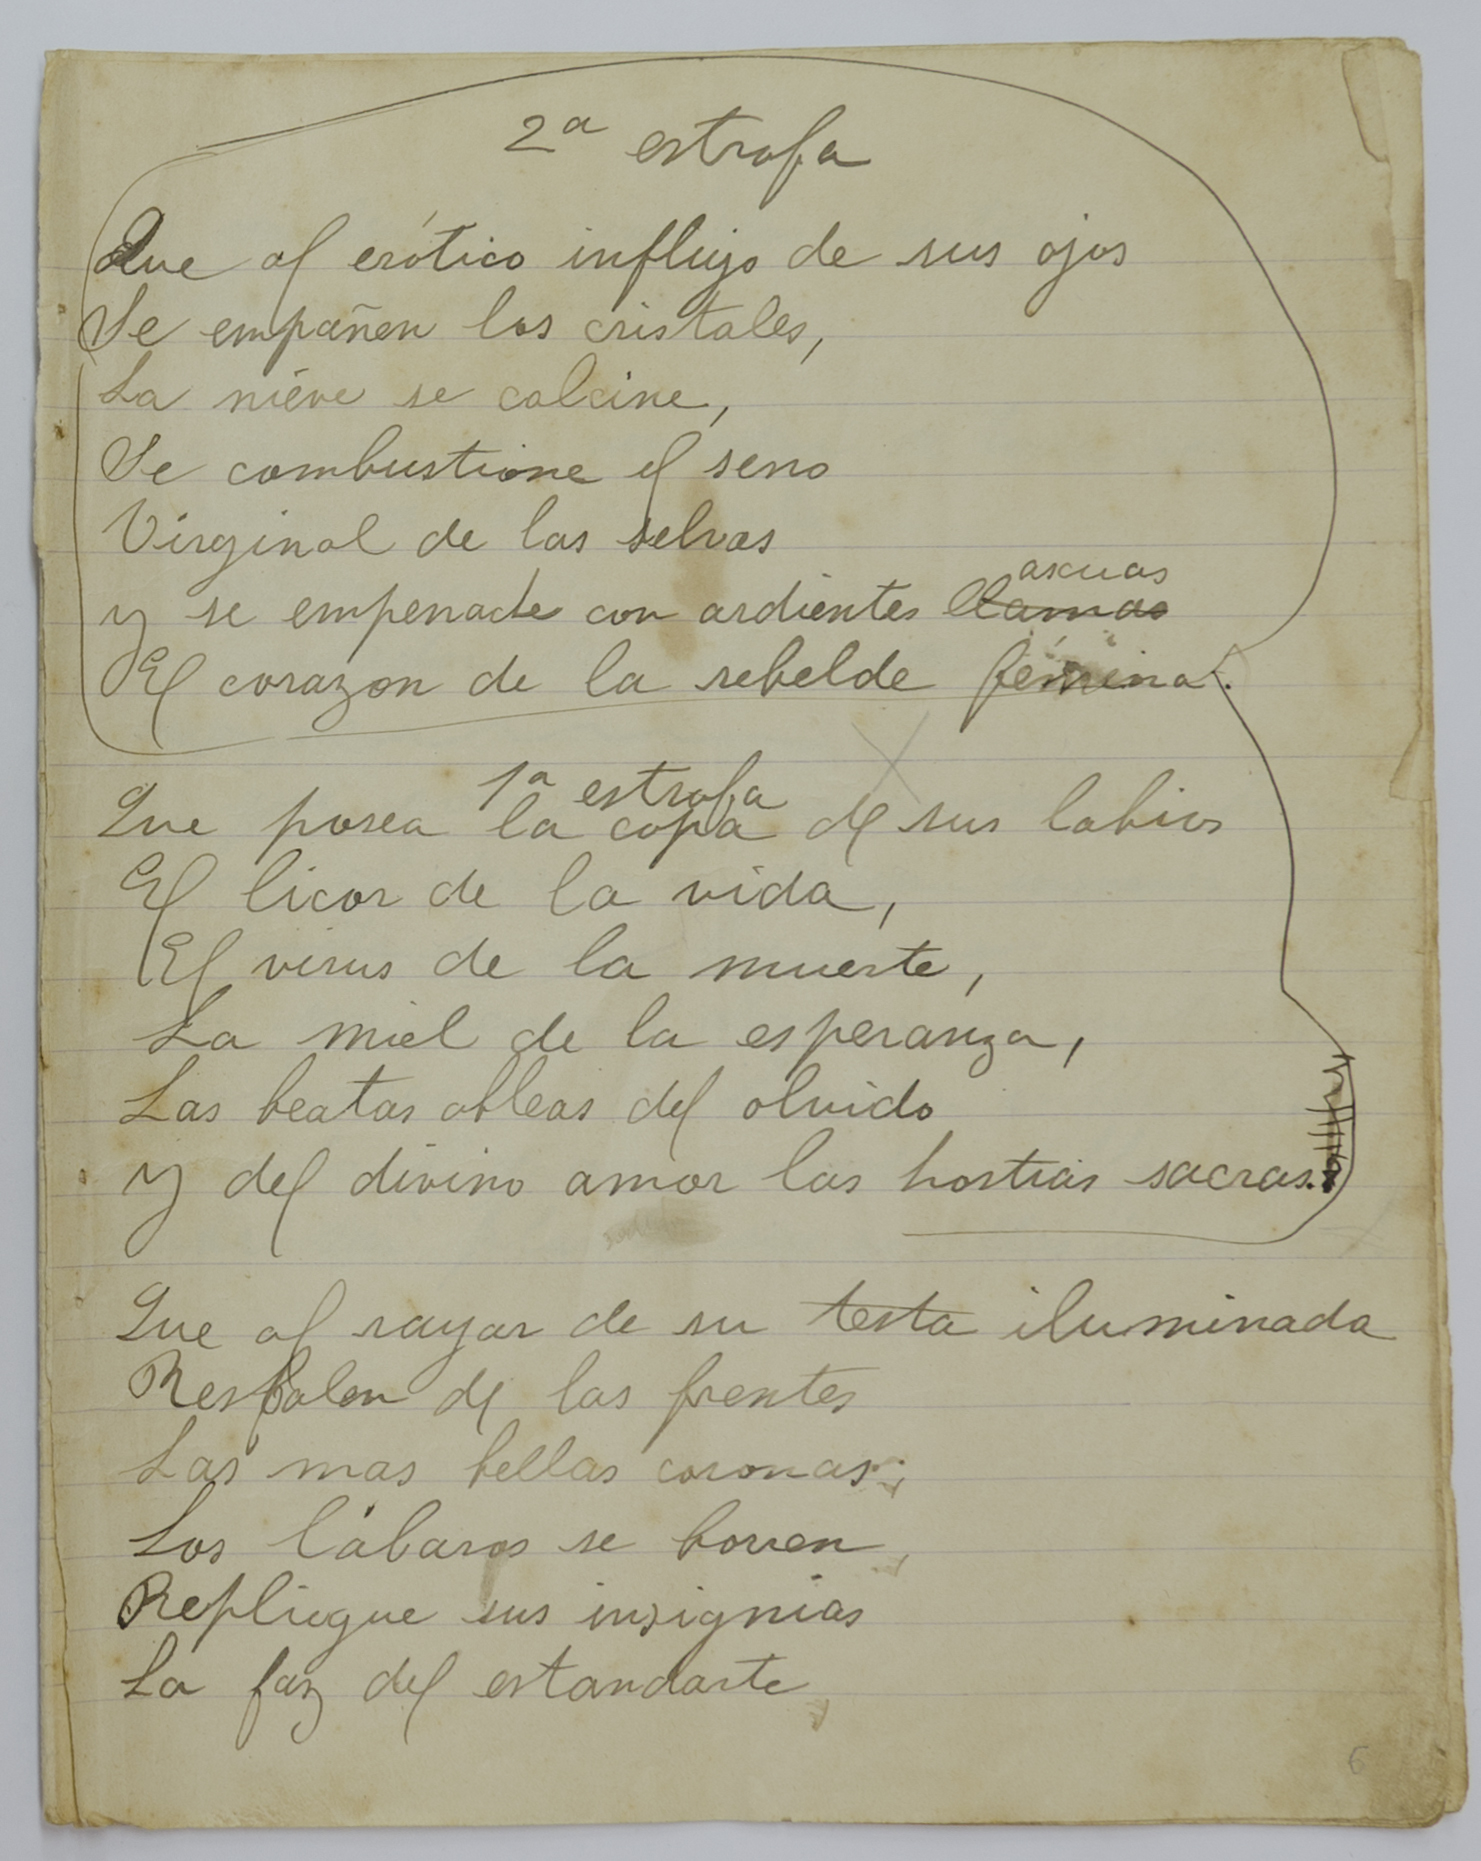 2ª estrofa
Que al erótico influjo de sus ojos
Se empañen los cristales,
La niéve se calcine,
Se combustione el seno
Virginal de las selvas
ascuas
y se empenache con ardientes llamas
El corazon de la rebelde fémina.
1ª estrofa
Que posea la copa de sus labios
El licor de la vida,
El virus de la muerte,
La miel de la esperanza,
Las beatas obleas del olvido
y del divino amor las hostias sacras.
Que al rayar de su testa iluminada
Resbalen de las frentes
Las mas bellas coronas;
Los lábaros se borren,
Repliegue sus insignias
La faz del estandarte
6